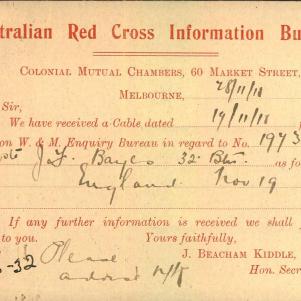 stralian Red Cross Information Bu
Colonial Mutual Chambers, 60 Market Street,
Melbourne, 28/11/18
Sir,
We have received a Cable dated 19/11/18
on W. & M. Enquiry Bureau in regard to No. 1973
J. F. Bayes 32 Btn. as fo
England Nov 19
If any further information is received we shall
to you. Yours faithfully,
J. Beacham Kiddle,
-32 Please Hon. Secre